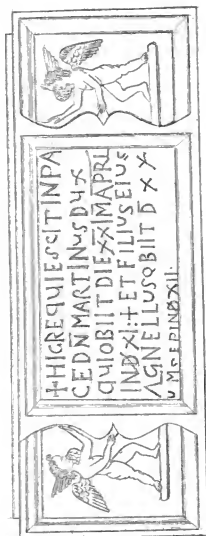 +HIC REQUIESCIT IN PA
CE DN̄ MARTINUS DUX
QUI OBIIT DIE XXI M APRL
IND XI:+ ET FILIUS EIUS
AGNELLUS Q BIIT D̄ XX
U M SEP IND XII